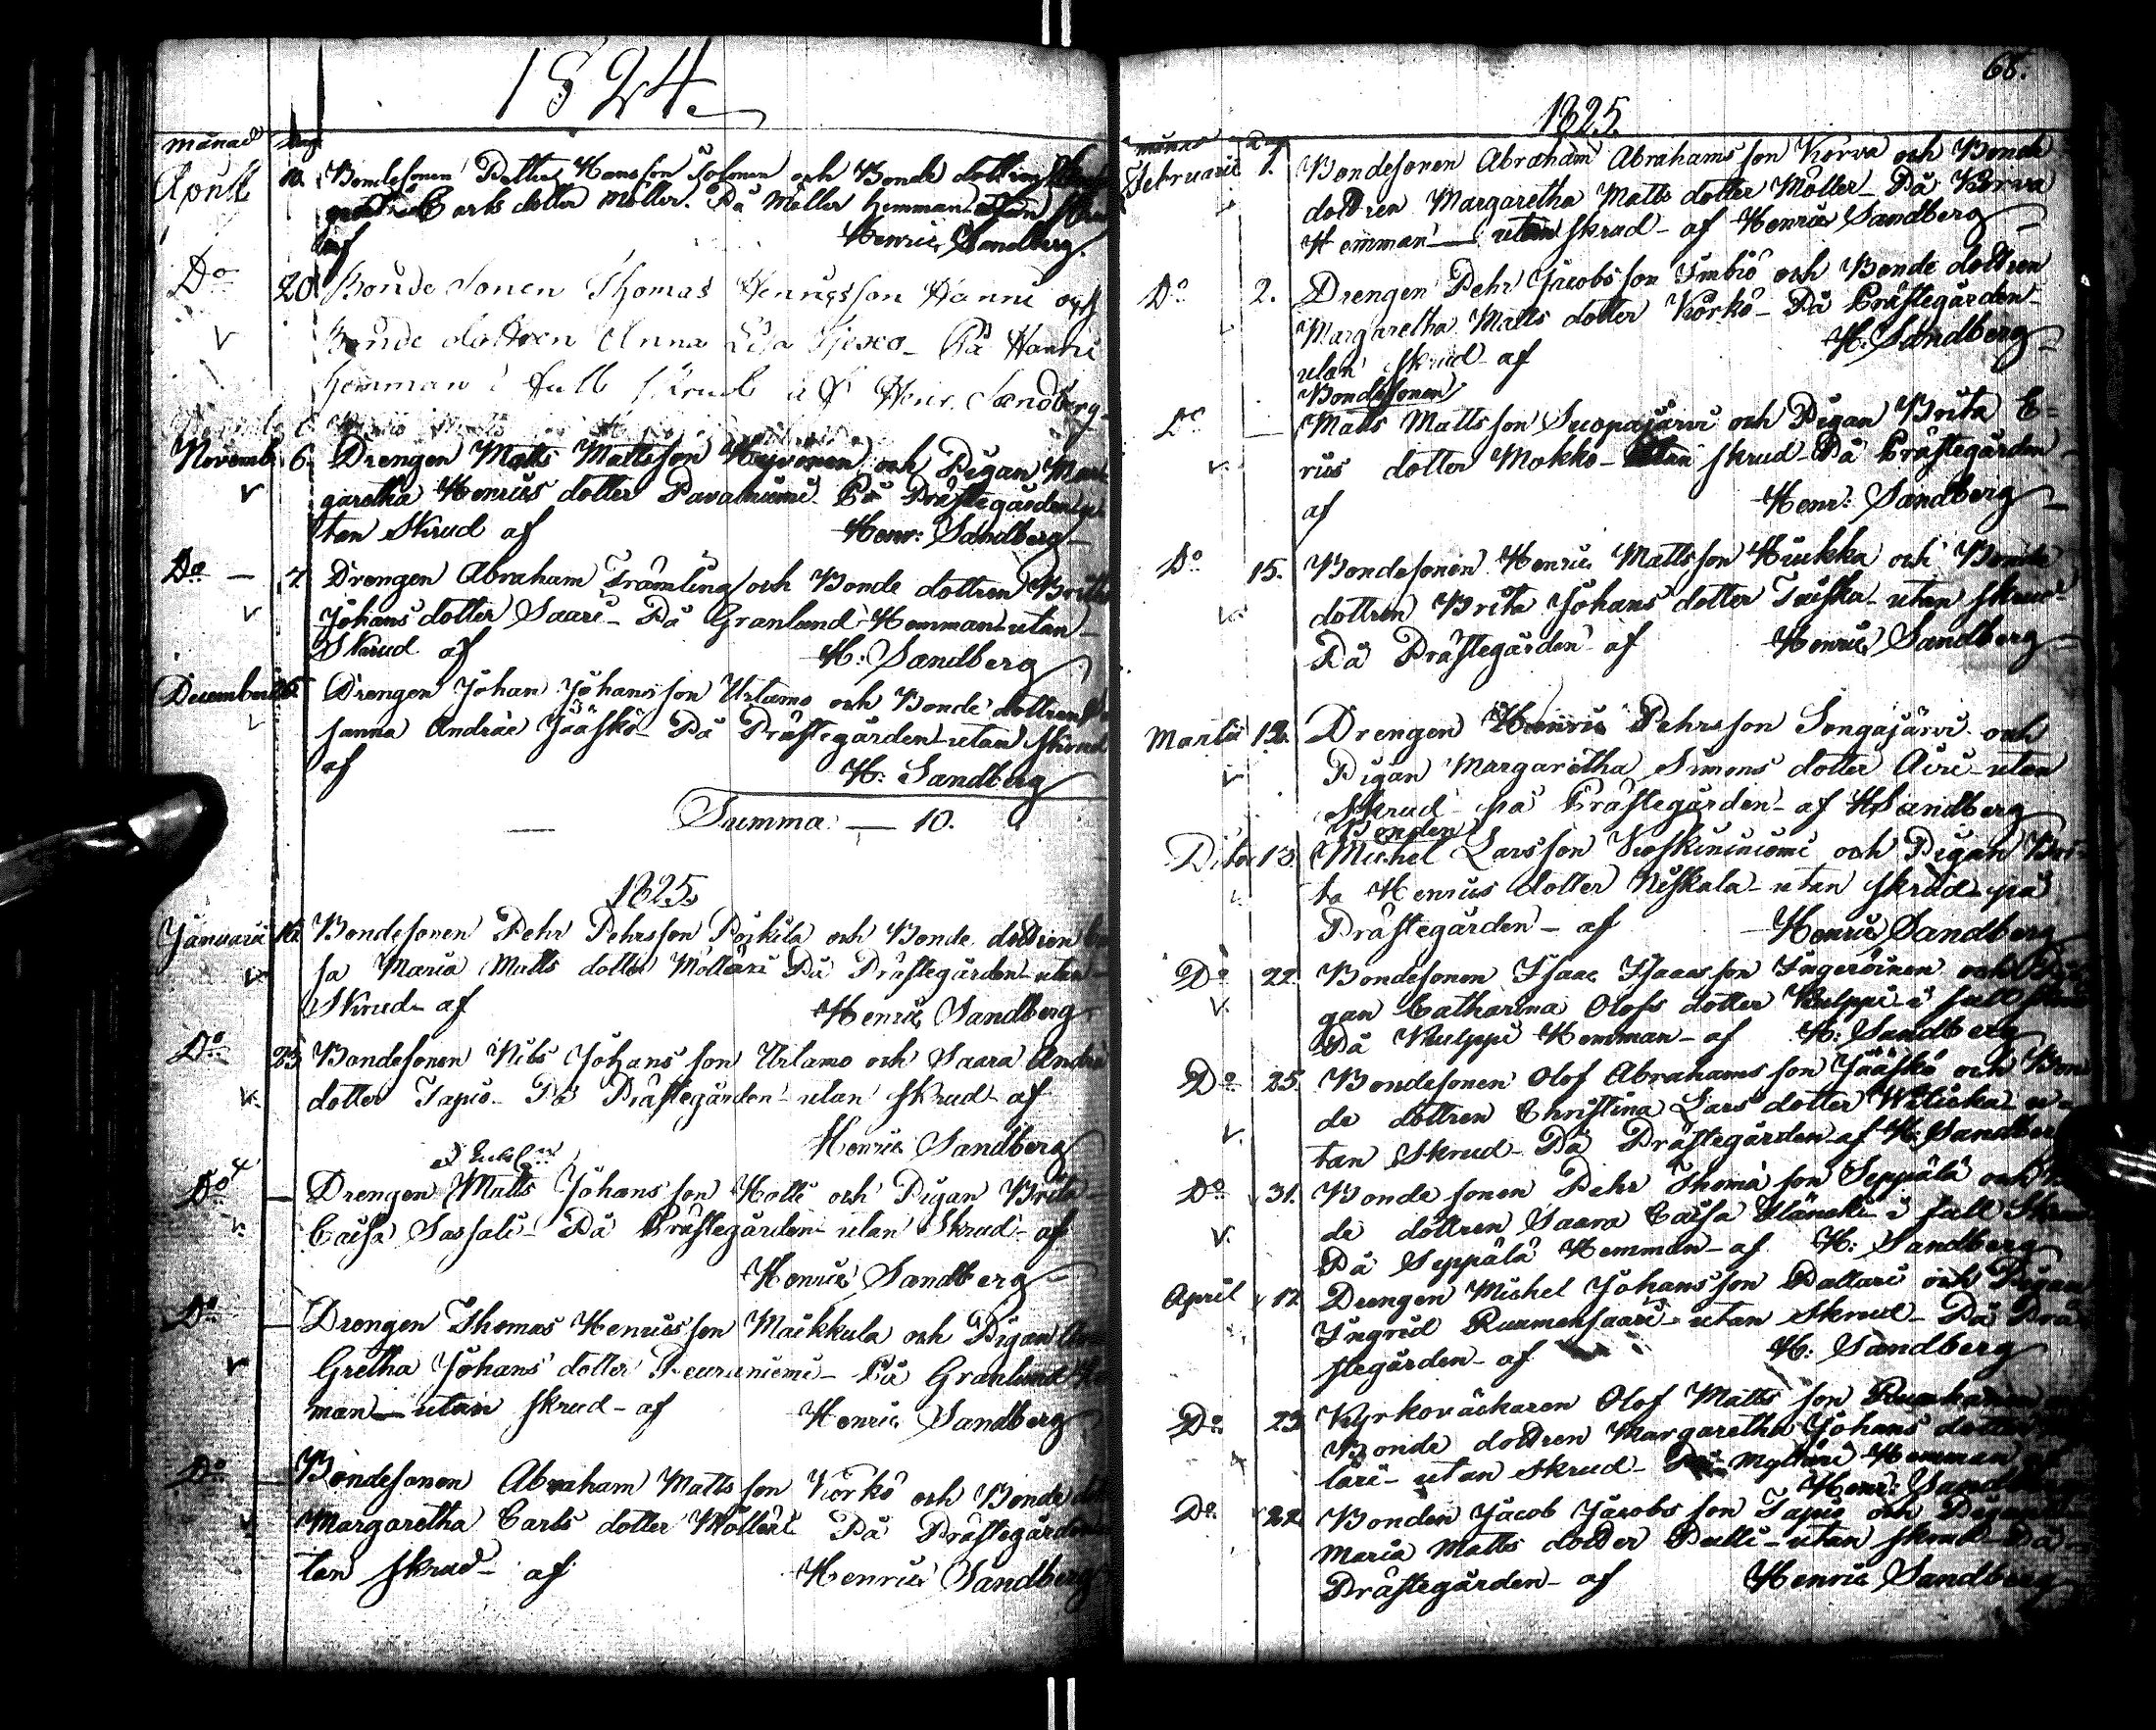 1824.
månad Dag
Aprill 10. Bondesonen Petter Hansson Solonen och Bonde dottren
Carls dotter Möller. På Möller Hemman utan
af Henric Sandberg.
Do 20 Bonde Sonen Thomas Henricsson Hannu och
Bonde dottren Anna Lisa På Hannu
hemman i full skrud af Henr. Sandberg.
Novemb. 6. Drengen Matts Mattsson och Pigan Mar
garetha Henrics dotter På Prästegården u
tan Skrud af Henr: Sandberg
Do 7. Drengen Abraham Främling och Bonde dottren Britha
Johans dotter Saari På Granlund Hemman utan
Skrud af H: Sandberg
December 26. Drengen Johan Johansson Urtamo och Bonde dottren
sanna Andräe Jääskö På Prästegården utan skrud
af H: Sandberg
Summa — 10.
1825.
Januarii 16. Bondesonen Pehr Pehrsson Poikila och Bonde dottren Ca
sa Maria Matts dotter Möllari På Prästegården utan
Skrud af Henric Sandberg
Do 25 Bondesonen Nils Johansson Urtamo och Saara Andrs
dotter Tapio På Prästegården utan skrud af
Henric Sandberg
Do — Drengen Matts Johansson Kolli och Pigan Brita
Caisa Sassali På Prästegården utan Skrud af
Henric Sandberg
Do — Drengen Thomas Henricsson Maikkula och Pigan
Gretha Johans dotter På Granlund He
man utan skrud af Henric Sandberg
Do — Bondesonen Abraham Mattsson Körkö och Bonde
Margaretha Carls dotter Möllari På Prästegården
tan skrud af Henric Sandberg
68.
1825.
månad Dag
Februarii 1. Bondesonen Abraham Abrahamsson Korva och Bonde
dottren Margaretha Matts dotter Möller På Korva
Hemman utan skrud af Henric Sandberg
Do 2. Drengen Pehr Jacobsson Imbiö och Bonde dottren
Margaretha Matts dotter Körkö På Prästegården
utan skrud af H: Sandberg
Bondesonen
Do — Matts Mattsson Suopajärvi och Pigan Brita E=
rics dotter Mokko utan skrud På Prästegården
af Henr: Sandberg
Do 15. Bondesonen Henric Mattsson Kiukka och Bonde
dottren Brita Johans dotter Taiska utan skrud
På Prästegården af Henric Sandberg
Martii 12. Drengen Henric Pehrsson Songajärvi och
Pigan Margaretha Simons dotter Airi utan
Skrud på Prästegården af H: Sandberg
Bonden
Dito 13. Michel Larsson Koskiniemi och Pigan Bri=
ta Henrics dotter Niskala utan skrud på
Prästegården af Henric Sandberg
Do 22. Bondesonen Isaac Isaacsson Ingeröinen och Pi
gan Catharina Olofs dotter Kulppi i full skrud
På Kulppi Hemman af H: Sandberg
Do 25. Bondesonen Olof Abrahamsson Jääskö och Bon
de dottren Christina Lars dotter u=
tan Skrud På Prästegården af H: Sandberg
Do 31. Bonde sonen Pehr Thomä son Seppälä och
de dottren Saara Caisa i full Skrud
På Seppälä Hemman af H: Sandberg
April 17. Drengen Michel Johansson Pallari och Pigan
Ingrid Ruumensaari utan Skrud På Prä
stegården af H: Sandberg
Do 23. Kyrkoväckaren Olof Matts son
Bonde dottren Margaretha Johans dotter
läri utan Skrud På Myllari Hemman
Henr: Sandberg
Do 22 Bonden Jacob Jacobs son Tapio och Pigan
Maria Matts dotter Pulli utan skrud På
Prästegården af Henric Sandberg